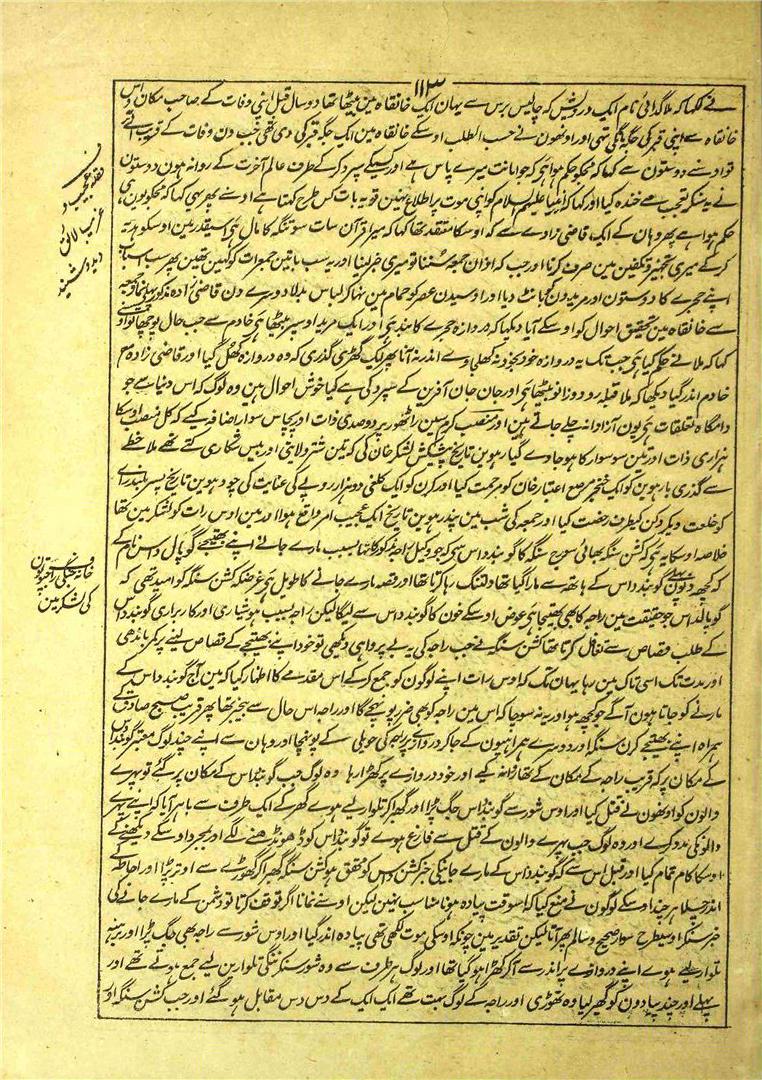 ۱۱۳
نے لکھا کہ ملا گدائی نام ایک درویش کہ چالیس برس سے یہان ایک خانقاہ مین بیٹھا تھا دو سال قبل اپنی وفات کے صاحب مکان اوس
خانقاہ سے اپنی قبر کی جگہ مانگی تہی اور اونھون نے حسب الطلب اوسکے خانقاہ مین ایک جگہ قبر کی دی تھی جب دن وفات کے قریب آئے
تو اوسنے دوستون سے کہا کہ مجھکو حکم ہوا ہی کہ جو امانت میرے پاس ہے اور کسیکے سپرد کر کے طرف عالم آخرت کے روانہ ہون دوستون
نے یہ سنکر تعجب سے خندہ کیا اور کہا کہ انبیا علیہم السلام کو اپنی موت پر اطلاع نہین تو یہ بات کس طرح کہتا ہے اوسنے پھر یہی کہا کہ مجھکو یون ہی
حکم ہوا ہے پھر وہان کے ایک قاضی زادے سے کہ اوسکا معتقد تھا کہا کہ میرا قرآن سات سو تنگہ کا مال ہی اسیقدر مین اوسکو ہدیہ
کر کے میری تجہیز و تکفین مین صرف کرنا اور جب کہ اذان جمعہ سننا تو میری خبر لینا اور یہ سب باتین جمعرات کو کہین تھین پھر سب اسباب
اپنے حجرے کا دوستون اور مریدون کو بانٹ دیا اور اوسیدن عصر کو حمام مین نہا کر لباس بدلا دوسرے دن قاضی زادہ مذکور پہلے نماز جمعہ
سے خانقاہ مین تحقیق احوال کو اوسکے آیا دیکھا کہ دروازہ حجرے کا بند ہی اور ایک مرید اوسپر بیٹھا ہی خادم سے جب حال پوچھا تو اوسنے
کہا کہ ملا نے حکم کیا ہی جب تک یہ دروازہ خود بخود نہ کھلجاوے اندر نہ آنا پھر ایک گھڑی گذری کہ وہ دروازہ کھل گیا اور قاضی زادہ مع
خادم اندر گیا دیکھا کہ ملا قبلہ رو دوزانو بیٹھا ہی اور جان جان آفرین کے سپرد کی ہے کیا خوش احوال ہین وہ لوگ کہ اس دنیا سے جو
دامگاہ تعلقات ہی یون آزادانہ چلے جاتے ہین اور منصب کرم سین راٹھور پر دو صدی ذات اور پچاس سوار اضافہ کیے کہ کل منصب اوسکا
ہزاری ذات اور تین سو سوار کا ہو جاوے گیارہوین تاریخ پیشکش لشکر خان کی کہ تین شتر ولایتی اور بیس شکاری کتے تھے ملاحظے
سے گذری بارہوین کو ایک خنجر مرصع اعتبار خان کو مرحمت کیا اور کرن کو ایک کلغی دو ہزار روپے کی عنایت کی چودہوین تاریخ پسر بلند رای
کو خلعت دیکر دکن کیطرف رخصت کیا اور جمعہ کی شب مین پندرہوین تاریخ ایک عجیب امر واقع ہوا اور مین اوس رات کو لشکر مین تھا
خلاصہ اوسکا یہ ہی کہ کشن سنگہ بھائی سورج سنگہ کا گوبند داس سے کہ جو وکیل راجہ مذکور کا تھا بسبب مارے جانے اپنے بھتیجے گوپال داس نام کے
کہ کچھ دنون پہلے گوبند داس کے ہاتھہ سے مارا گیا تھا دلتنگ رہا کرتا تھا اور قصہ مارے جانے کا طویل ہی غرضکہ کشن سنگہ کو امید تھی کہ
گوپالداس جو حقیقت مین راجہ کا بھی بھتیجا ہی عوض اوسکے خون کا گوبند داس سے لیگا لیکن راجہ بسبب ہوشیاری اور کاربراری گوبند داس
کے طلب قصاص سے تغافل کرتا تھا کشن سنگہ نے جب راجہ کی یہ بے پرواہی دیکھی تو خود اپنے بھتیجے کے قصاص لینے پر کمر باندھی
اور مدت تک اسی تاک مین رہا یہان تک کہ اوس رات اپنے لوگون کو جمع کر کے اس مقدمے کا اظہار کیا کہ مین آج گوبند داس کے
مارنے کو جاتا ہون آگے جو کچھ ہو اور یہ نہ سوچا کہ اس مین راجہ کو بھی ضرر پہونچیگا اور راجہ اس حال سے بیخبر تھا پھر قریب صبح صادق کے
ہمراہ اپنے بھتیجے کرن سنگہ اور دوسرے ہمراہیون کے جا کر دروازے پر راجہ کی حویلی کے پہونچا اور وہان سے اپنے چند لوگ معتبر گوبند داس
کے مکان پر کہ قریب راجہ کے مکان کے تھا روانہ کیے اور خود دروازے پر کھڑا رہا وہ لوگ جب گوبند داس کے مکان پر گئے تو پہرے
والون کو اونھون نے قتل کیا اور اوس شور سے گوبند داس جگ پڑا اور گھبرا کر تلوار لیے ہوے گھر کے ایک طرف سے باہر آیا کہ اپنے پہرے
والونکی مدد کرے اور وہ لوگ جب پہرے والون کے قتل سے فارغ ہوے تو گوبند داس کو ڈھونڈھنے لگے اور بمجرد اوسکے دیکھنے کے
اوسکا کام تمام کیا اور قبل اس سے کہ گوبند داس کے مارے جانیکی خبر کشن سنگہ کو تحقیق ہو کشن سنگہ گھبرا کر گھوڑے سے اوتر پڑا اور احاطہ کے
اندر چلا ہر چند اوسکے لوگون نے منع کیا کہ اسوقت پیادہ ہونا مناسب نہین لیکن اوسنے نمانا اگر توقف کرتا تو دشمن کے مارے جانے کی
خبر سنکر اوسیطرح سوار صحیح و سالم پھر آتا لیکن تقدیر مین چونکہ اوسکی موت لکھی تھی پیادہ اندر گیا اور اوس شور سے راجہ بھی جگ پڑا اور برہنہ
تلوار لیے ہوے اپنے دروازے پر اندر سے آ کر کھڑا ہو گیا تھا اور لوگ ہر طرف سے وہ شور سنکر ننگی تلوارین لیے جمع ہوتے تھے اور
پہلے اور چند پیادون کو گھیر لیا وہ تھوڑی اور راجہ کے لوگ بہت تھے ایک ایک کے دس دس مقابل ہو گئے اور جب کشن سنگہ اور
قصہ عجیب و
غریب لائق
دید و شنید
خانہ جنگی راجپوتون
کی لشکر مین